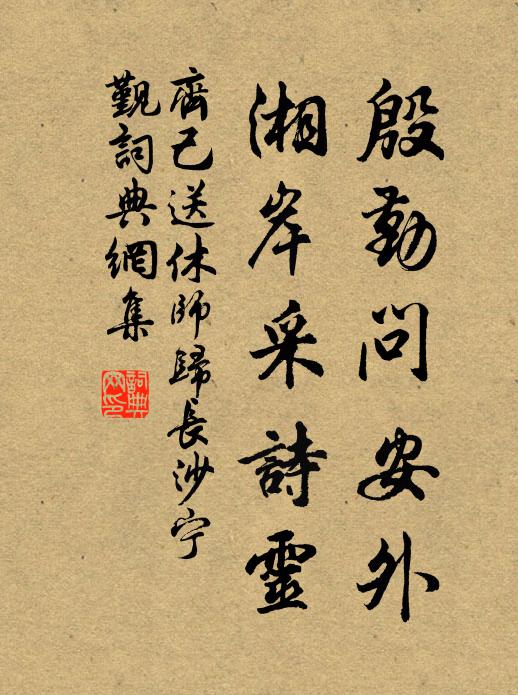 殷勤問安外
湘岸采詩靈
齊己送休師歸長沙宁
覲詞典網集
詞典网印